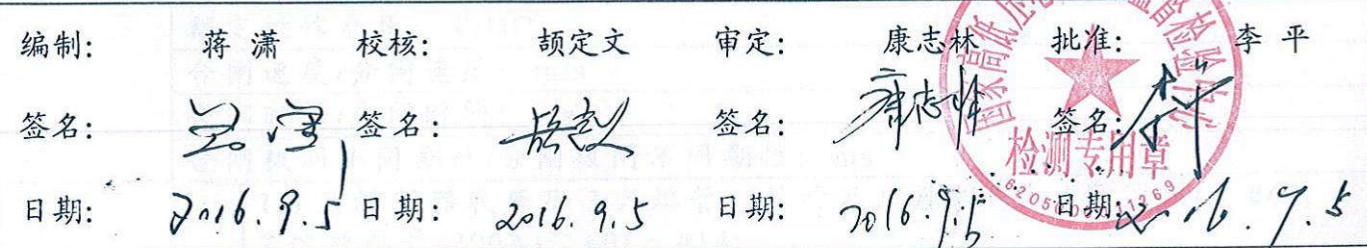 编制: 蒋 潇 校核: 颉定文 审定: 康志林 批准: 李 平
签名: 签名: 签名: 康志林 签名:
日期: 2016.9.5 日期: 2016.9.5 日期: 2016.9.5 日期: 2016.9.5
国家高低压电 监督检验中心
检测专用章